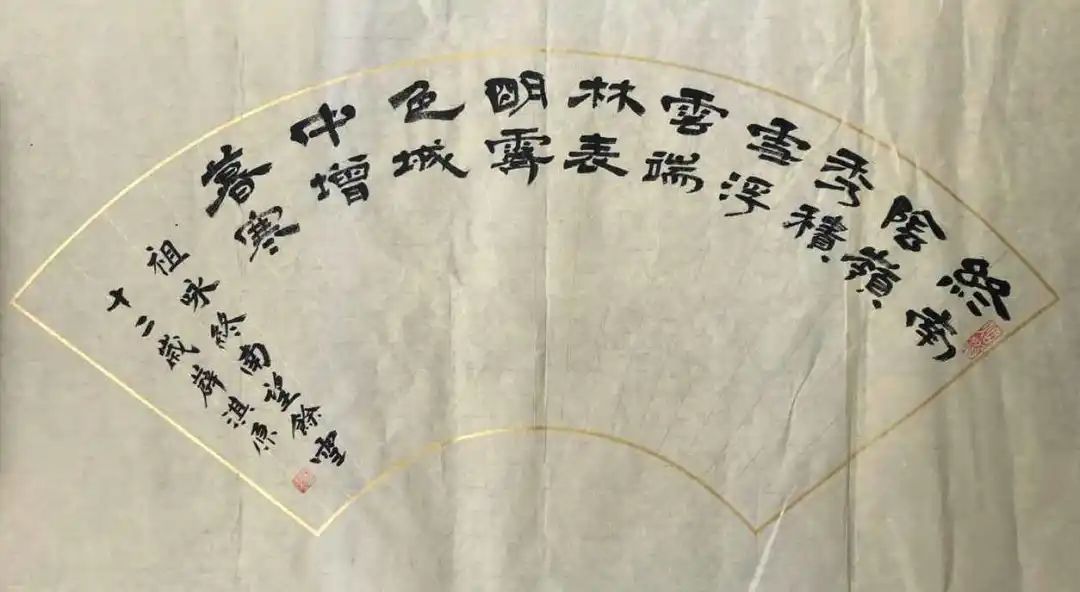 終南
陰嶺
秀積
雪浮
雲端
林表
明霽
色城
中增
暮寒
祖咏終南望餘雪
十二歲薛淇原